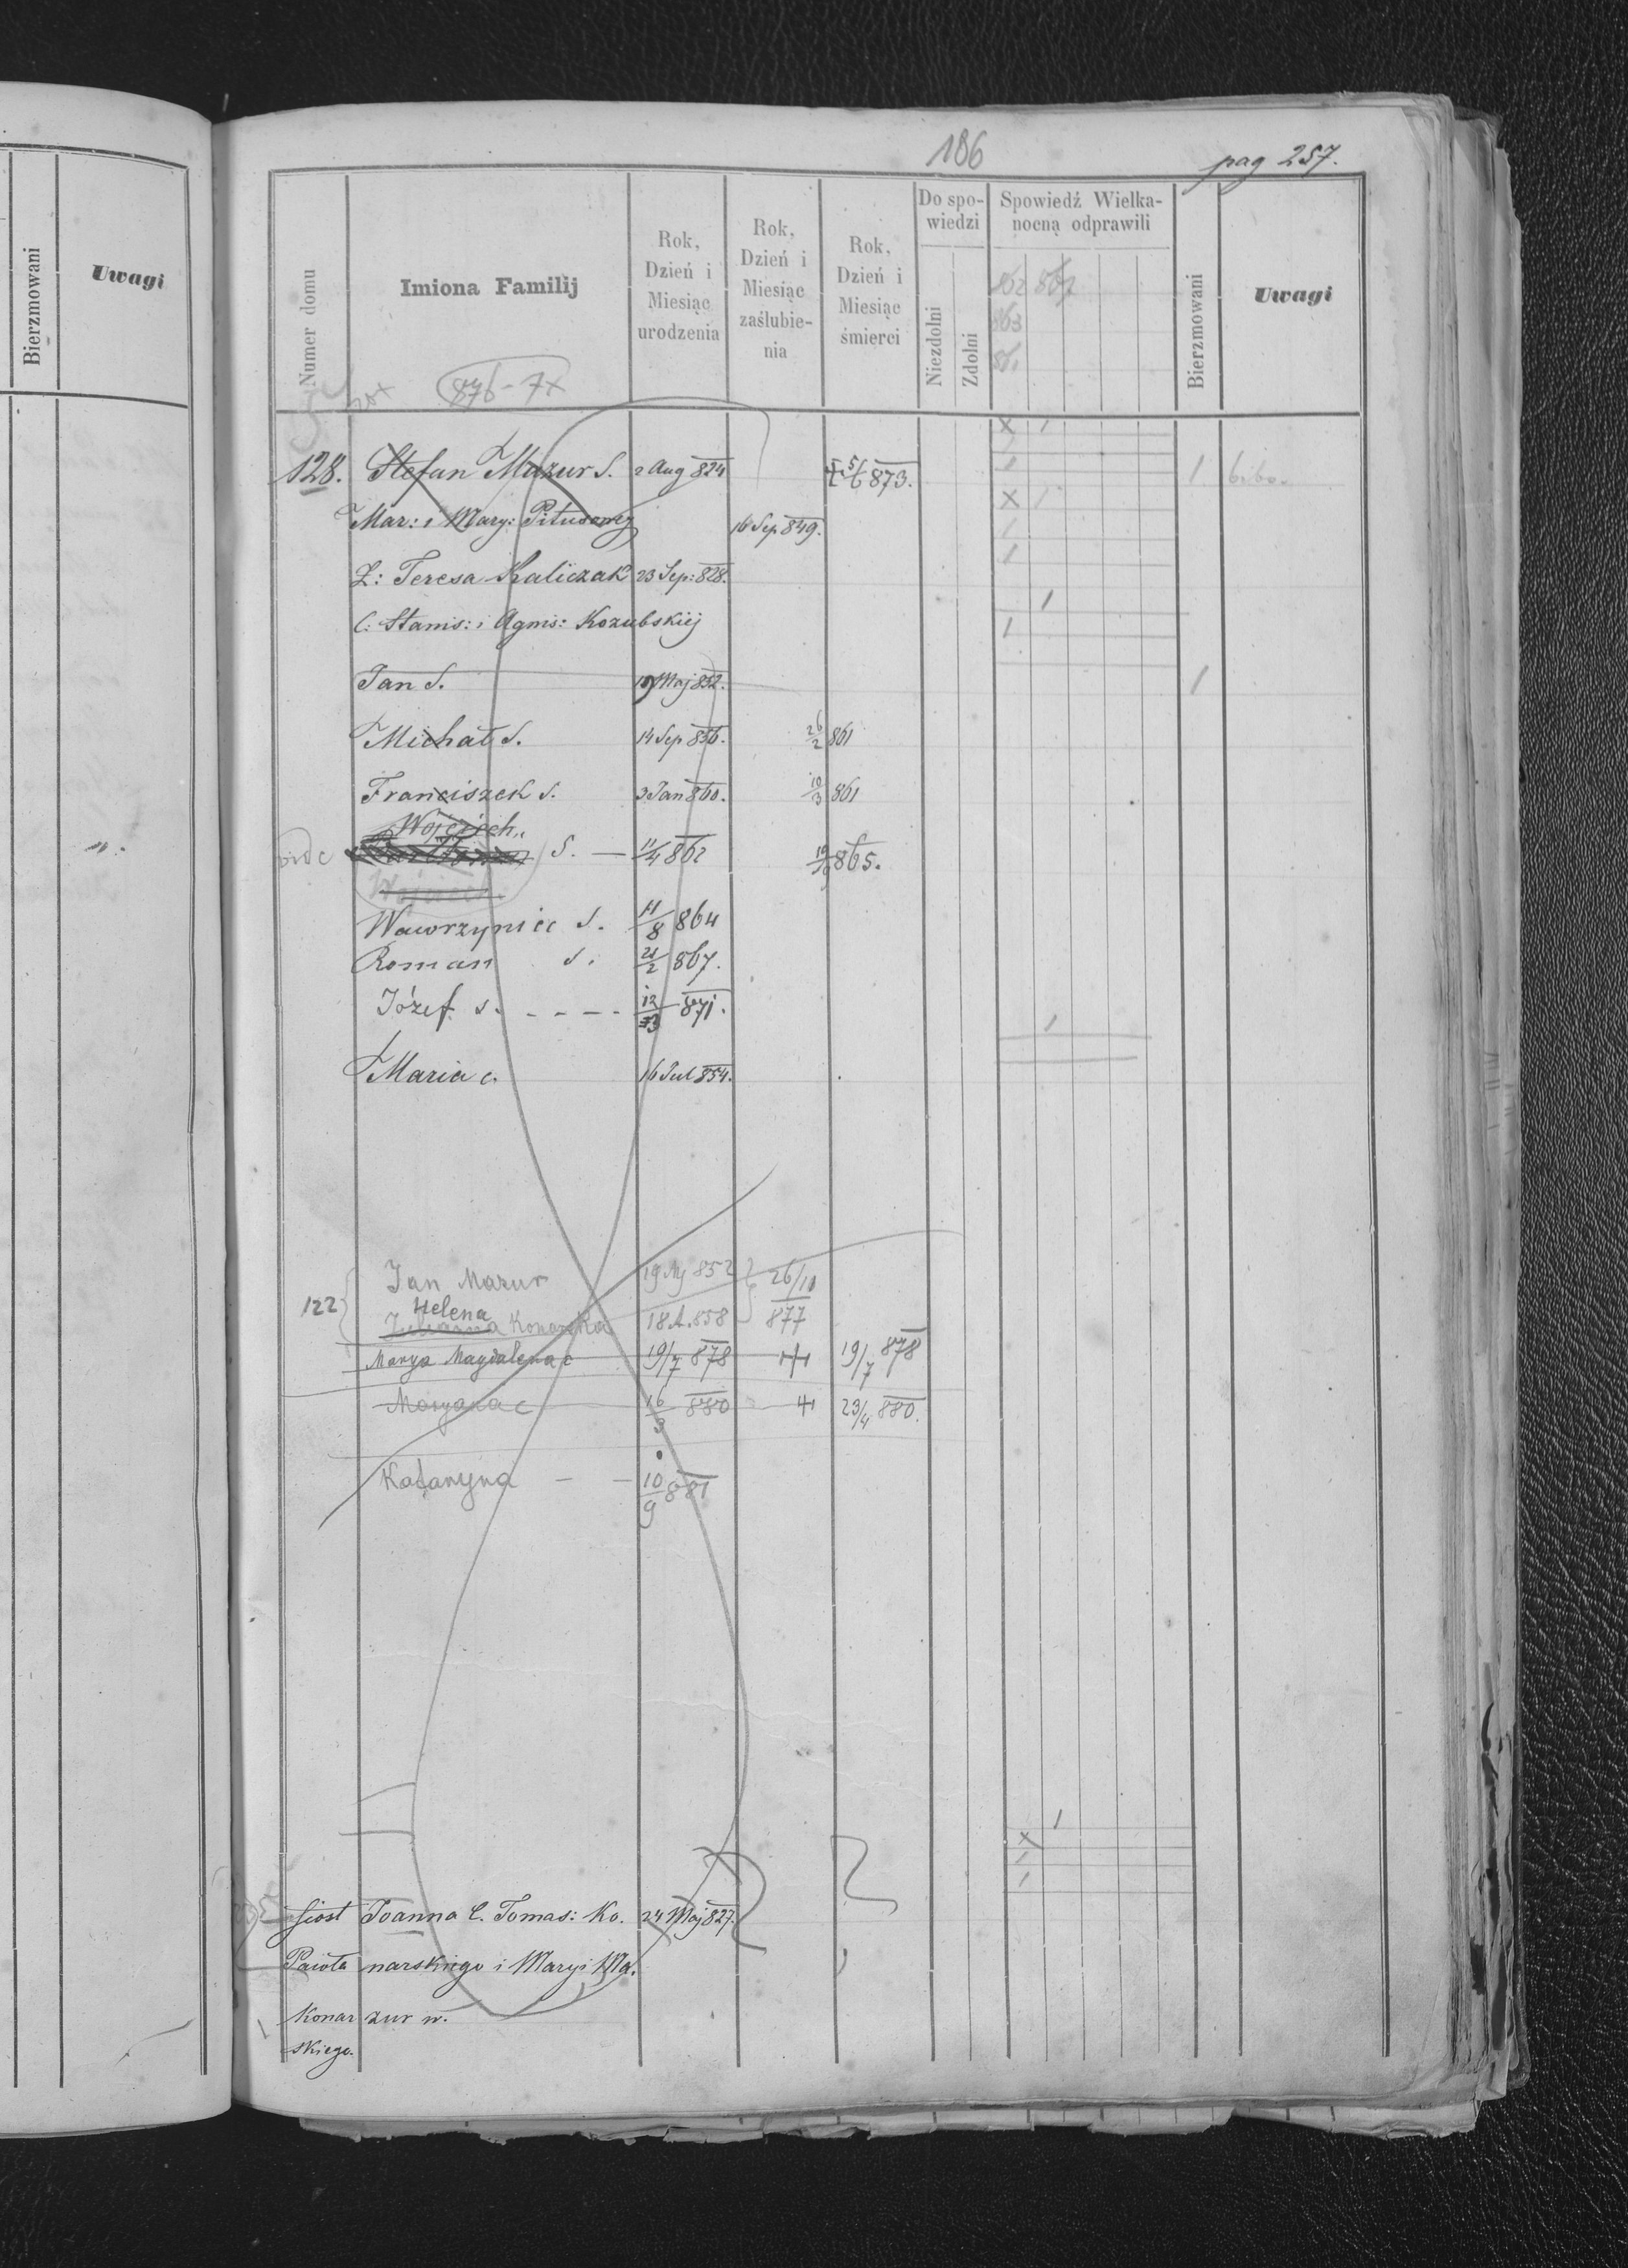 Bierzmowani
Uwagi
186
pag 257.
Numer domu
Imiona Familij
Rok, Dzień i Miesiąc urodzenia
Rok, Dzień i Miesiąc zaślubienia
Rok, Dzień i Miesiąc śmierci
Do spowiedzi
Niezdolni
Zdolni
Spowiedź Wielkanocną odprawili
Bierzmowani
Uwagi
862
863
876 - 7x
128. Stefan Mazur S. 2 Aug 824 5/6 873. 1
Mar: i Mary: Pitusowny 16 Sep 849.
Ż: Teresa Kaliczak 23 Sep: 828.
C: Stanis: i Agnis: Kozubskiej
Jan S. 19 Maj 852. 1
Michał S. 14 Sep 856. 26/2 861
Franciszek S. 3 Jan 860. 10/3 861
Wojciech
S. — 11/4 862 865.
Wawrzyniec S. 11/8 864
Roman S. 21/2 867.
Józef S. - - - - 12/3 871.
Maria c. 16 Jul 854.
122 Jan Mazur 19 Mj 852 26/11 877
Helena
Julianna Konarska 18 A. 858
Marya Magdalena c 19/7 878 + 19/7 878
Maryana c 16/3 880 + 23/4 880.
Katarzyna - - 10/9 881
siost Joanna C. Tomas: Ko. 24 Maj 827.
Pawła narskiego i Maryi Ma.
Konar zur w.
skiego.